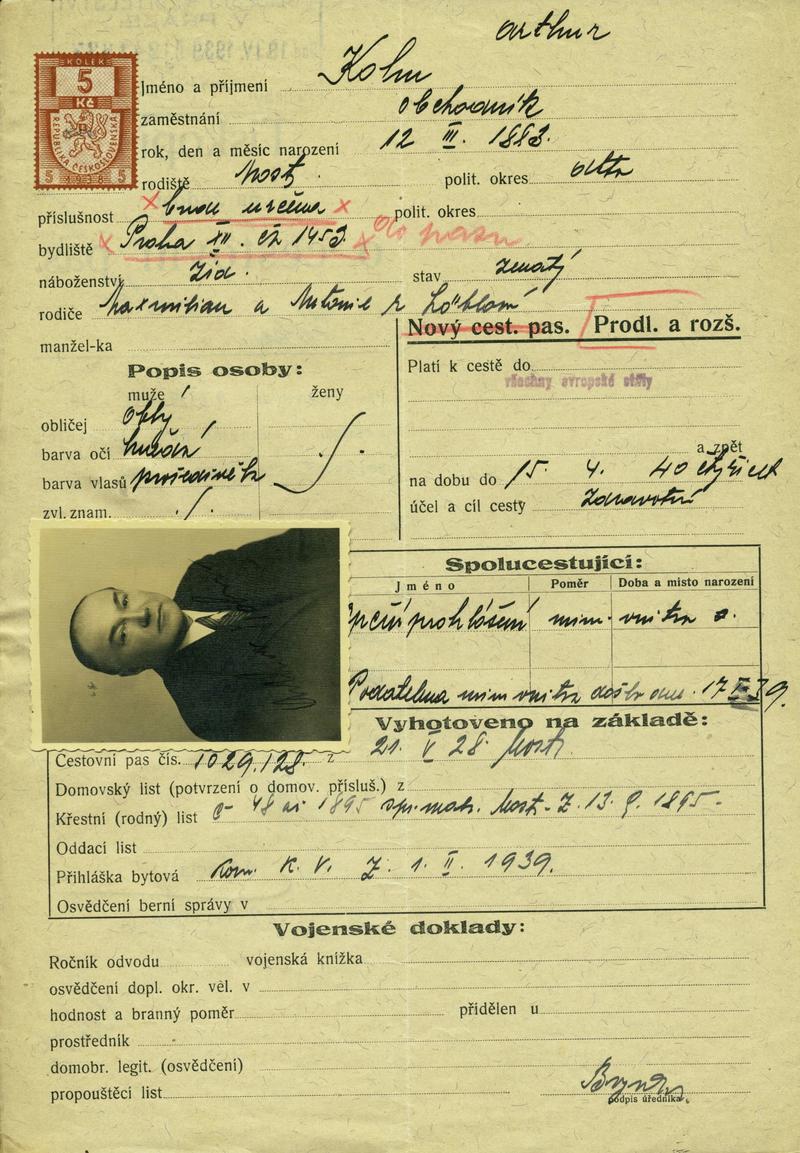 Arthur
Jméno a příjmení Kohn
zaměstnání obchodník
rok, den a měsíc narození 12 III. 1883
rodiště Most polit. okres dtto
příslušnost bude určena polit. okres
bydliště Praha XII. čž 1453 do pasu
náboženství Žid. stav ženatý
rodiče Maxmilian a Antonie r Löblová
manžel-ka
KOLEK
5
Kč
REPUBLIKA ČESKOSLOVENSKÁ
5 1938 5
Nový cest. pas. Prodl. a rozš.
Platí k cestě do
všechny evropské státy
a zpět
na dobu do 15. 4. 40
účel a cíl cesty Zdravotní
Popis osoby:
muže ženy
obličej oblý
barva očí hnědá
barva vlasů prošedivělá
zvl. znam.
Spolucestující:
Jméno Poměr Doba a místo narození
prohlášení min. vnitra
Podatelna min vnitra došlo dne 17 39.
Vyhotoveno na základě:
Cestovní pas čís. 1029.128. z 21. V 28. Most
Domovský list (potvrzení o domov. přísluš.) z
Křestní (rodný) list 48 1895 Most - Z. 13. 9. 1895 -
Oddací list
Přihláška bytová Kom. K. V. Z 1. II. 1939.
Osvědčení berní správy v
Vojenské doklady:
Ročník odvodu vojenská knížka
osvědčení dopl. okr. vel. v
hodnost a branný poměr přidělen u
prostředník
domobr. legit. (osvědčení)
propouštěcí list
podpis úředníka.